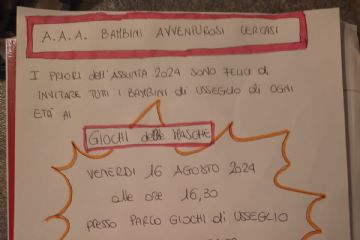 A.A.A. BAMBINI AVVENTUROSI CERCASI
I PRIORI dell'ASSUNTA 2024 SONO FELICI di
INVITARE TUTTI I BAMBINI di USSEGLIO di OGNI
ETÀ AI
GIOCHI delle MASCHE
VENERDI 16 AGOSTO 2024
alle ore 16,30
PRESSO PARCO GIOCHI di USSEGLIO